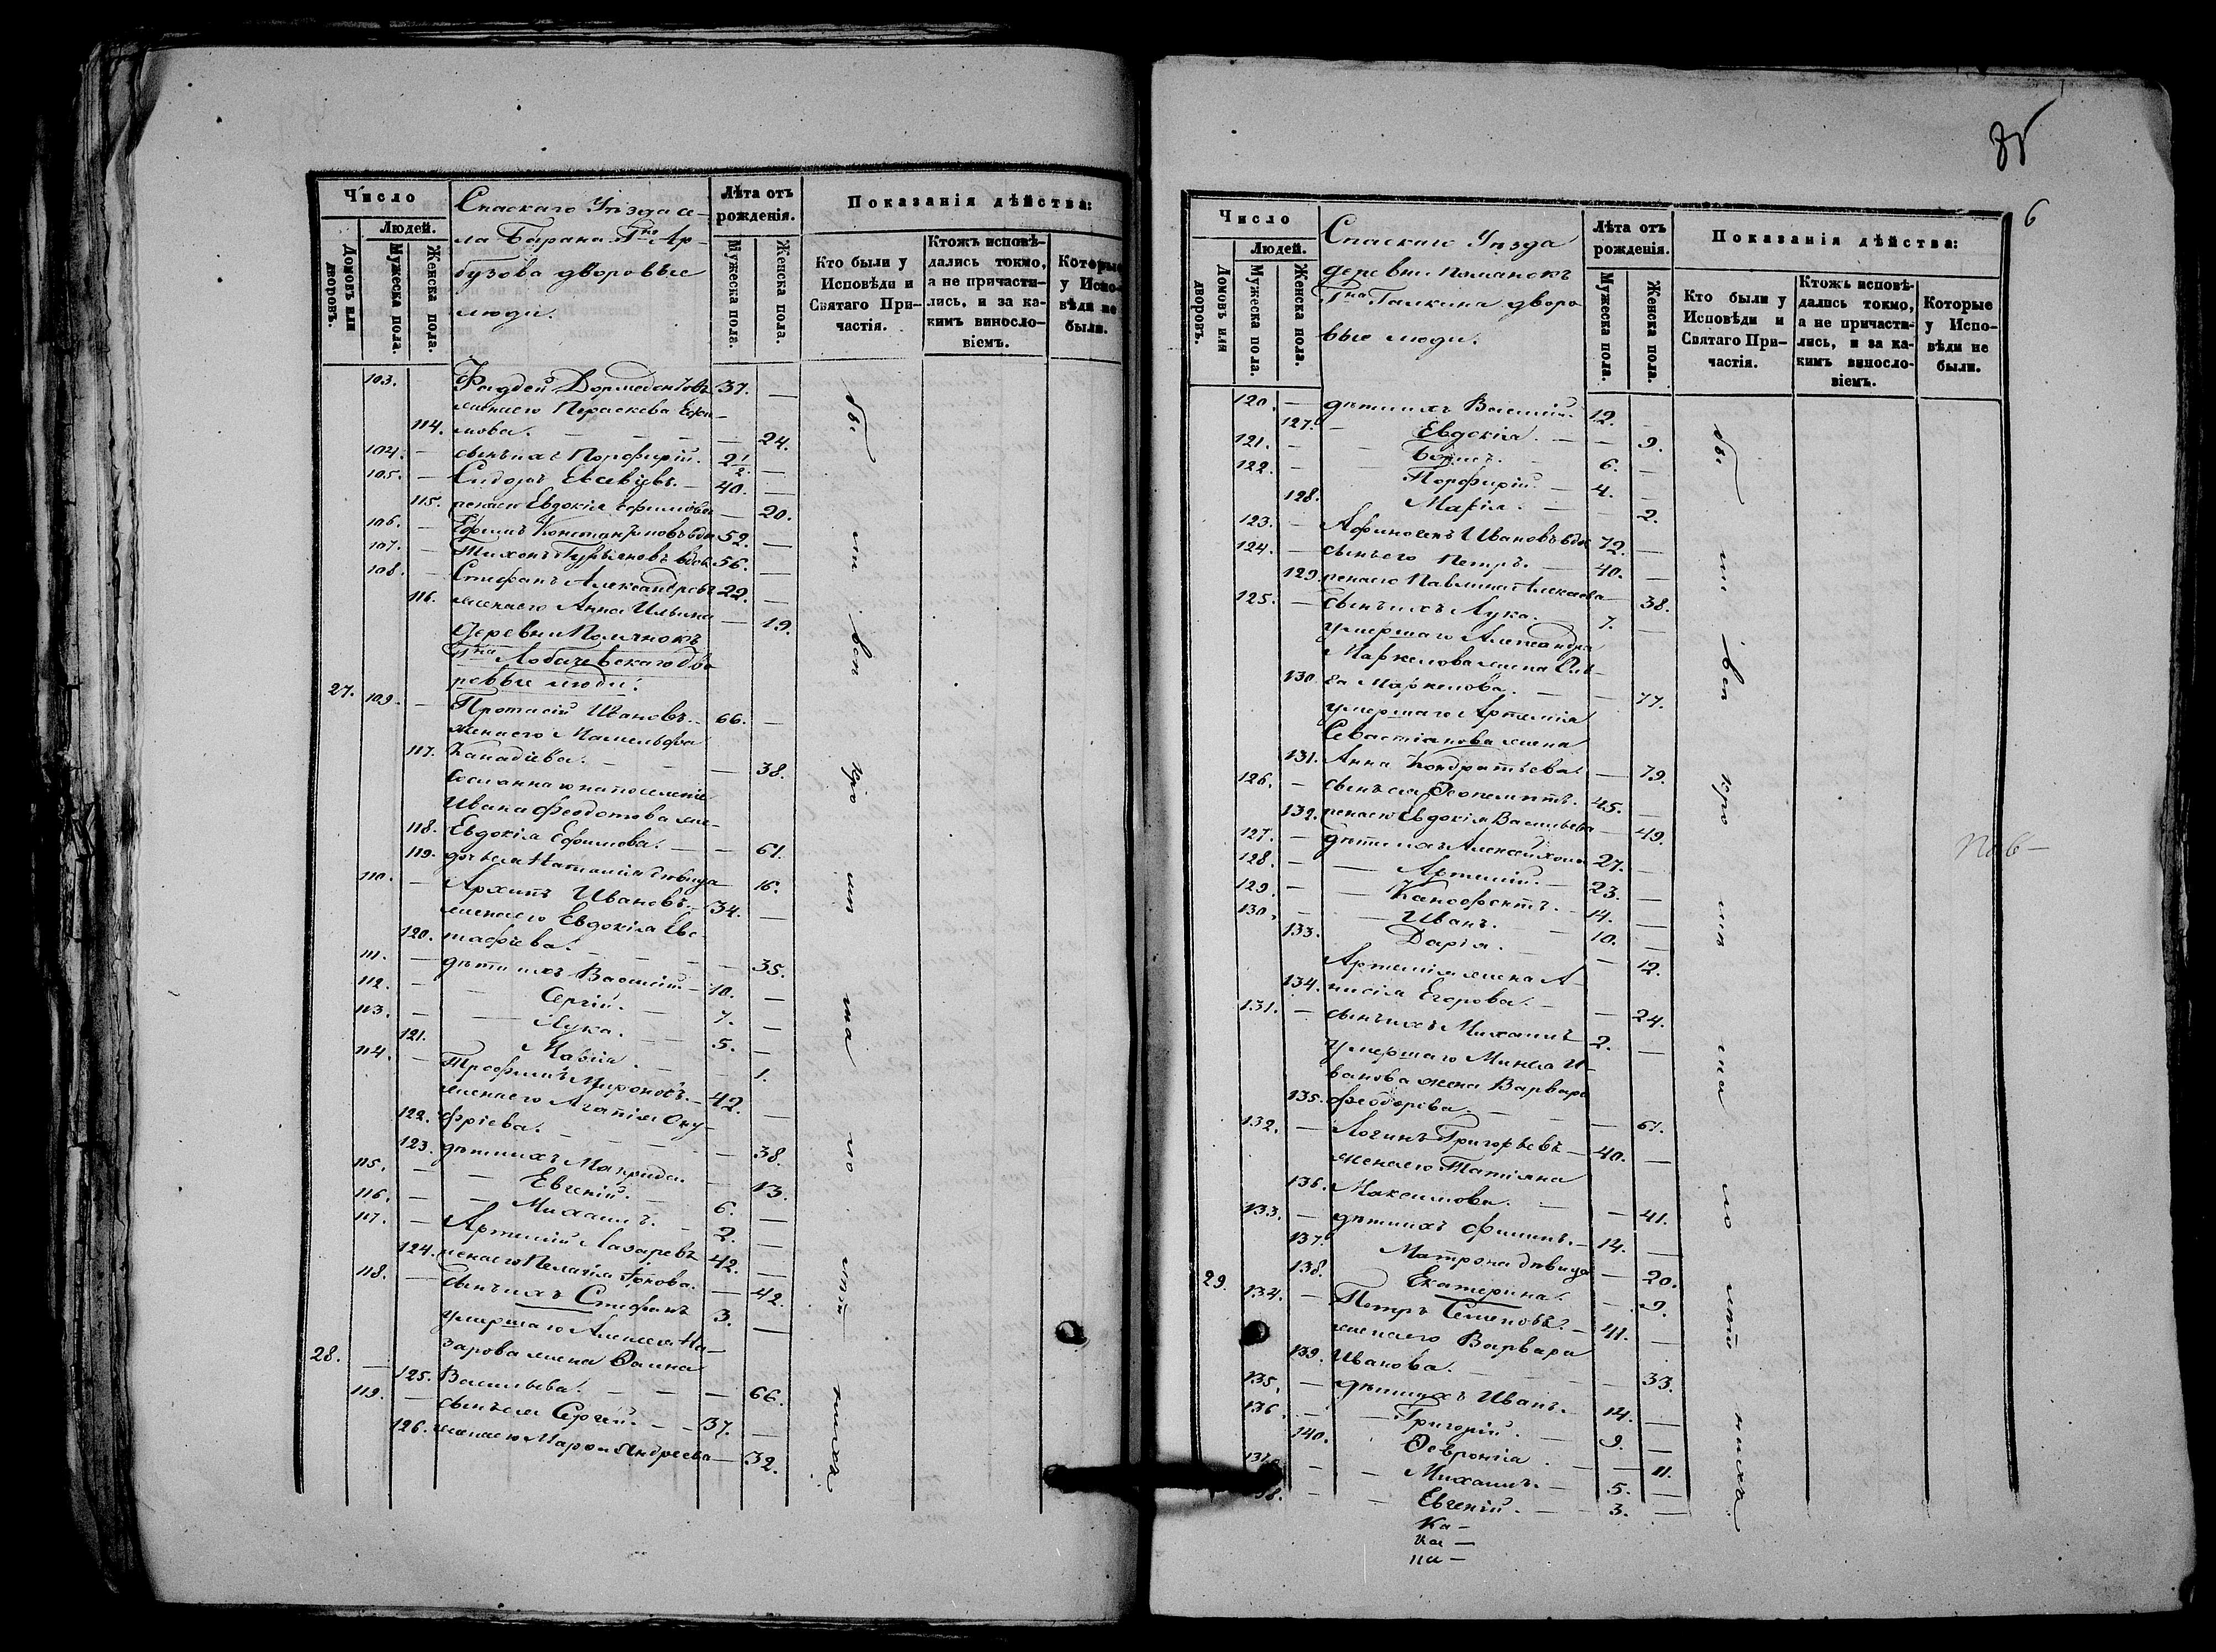 Число
Людей.
Домовъ или дворовъ.
Мужеска пола.
Женска пола.
Спаскаго Уѣзда се-
ла Барана Гна Ар-
бузова дворовые
люди.
Лѣта отъ рожденія.
Мужеска пола.
Женска пола.
Показанія дѣйства:
Кто были у Исповѣди и Святаго При-частія.
Ктожъ исповѣ-дались токмо, а не причасти-лись, и за ка-кимъ винословіемъ.
Которые у Испо-вѣди не были.
103. Фаддей Дормедонтовъ 37. —
жена его Параскева Ефи-
114. мова. — — — 24.
104. — сынъ их Порфирій. 2½. —
105. — Сидоръ Евсевіевъ. — 40. —
115. жена его Евдокія Ефимова — 20.
106. — Ефимъ Константиновъ вдов 52. —
107. — Тихонъ Гурьяновъ вдов 56. —
108. — Стефанъ Александровъ 22. —
116. жена его Анна Ильина — 19.
Деревни Полянокъ
Гна Лобачевскаго дво
ровые люди.
27. 109. — Протасій Ивановъ. — 66. —
жена его Мамельфа
117. Канадіева. — — — 38.
Сосланнаго на поселеніе
Ивана Феодотова же-
118. Евдокія Ефимова. — — 61.
119. дочь ея Наталія дѣвица — 16.
110. — Архипъ Ивановъ. — 34. —
жена его Евдокія Евс-
120. тафіева. — — — 35.
111. — дѣти ихъ Василій — 10. —
112. — — Сергій. — 7. —
113. — — Лука. — 5. —
121. Марія. — — 1.
114. — Трофимъ Мироновъ. — 42. —
жена его Агапія Ону-
122. фріева. — — — 38.
123. дѣти ихъ Макрида. — 13.
115. — — Евгеній. — 6. —
116. — — Михаилъ. — 2. —
117. — Артемій Лазаревъ 42. —
124. жена его Пелагія — 42.
118. — сынъ ихъ Стефанъ 3. —
умершаго Алексея На-
28. зарова жена Фаина
125. Васильева. — — — 66.
119. — сынъ ея Сергей. — — 37. —
126. жена его Марѳа Андреева — 32.
бы ли вси кро мѣ ма ло лѣт нихъ
85
6
Число
Людей.
Домовъ или дворовъ.
Мужеска пола.
Женска пола.
Спаскаго Уѣзда
деревни Полянокъ
Гна Галкина дворо
вые люди.
Лѣта отъ рожденія.
Мужеска пола.
Женска пола.
Показанія дѣйства:
Кто были у Исповѣди и Святаго При-частія.
Ктожъ исповѣ-дались токмо, а не причасти-лись, и за ка-кимъ винословіемъ.
Которые у Испо-вѣди не были.
120. — дѣти ихъ Василій. 12. —
127. — Евдокія. — — 9.
121. — — Борисъ. — 6. —
122. — — Порфирій. — 4. —
128. Марія. — — 2.
123. — Афиногенъ Ивановъ вдов 72. —
124. — сынъ его Петръ. — 40. —
129. жена его Павлина Алексеева — 38.
125. — сынъ ихъ Лука. — 7. —
умершаго Александра
Маркелова жена
130. Маркелова. — — 77.
умершаго Артемія
Севастіанова жена
131. Анна Кондратьева. — 79.
126. — сынъ ея Ѳеопемптъ. 45. —
132. жена его Евдокія Васильева — 49.
127. — дѣти ихъ Алексей холос 27. —
128. — — Артемій. — 23. —
129. — — Ксанофонтъ. — 14. —
130. — — Иванъ. — 10. —
133. Дарія. — — 12.
Артемія жена А-
134. нисія Егорова. — — 24.
131. — сынъ ихъ Михаилъ 2. —
умершаго Минея И-
ванова жена Варвара
135. Феодорова. — — — 61.
132. — Логинъ Григорьевъ — 40. —
жена его Татіяна
136. Максимова. — — 41.
133. — дѣти ихъ Филипъ. — 14. —
137. Матрона дѣвица — 20.
138. Екатерина. — 9.
29. 134. — Петръ Семеновъ. — 41. —
жена его Варвара
139. Иванова. — — — 33.
135. — дѣти ихъ Иванъ. — 14. —
136. — — Григорій. — 9. —
140. Ѳевронія. — — 11.
137. — — Михаилъ. — 5. —
138. — — Евгеній. — 3. —
бы ли вси кро мѣ ма ло лѣт нихъ